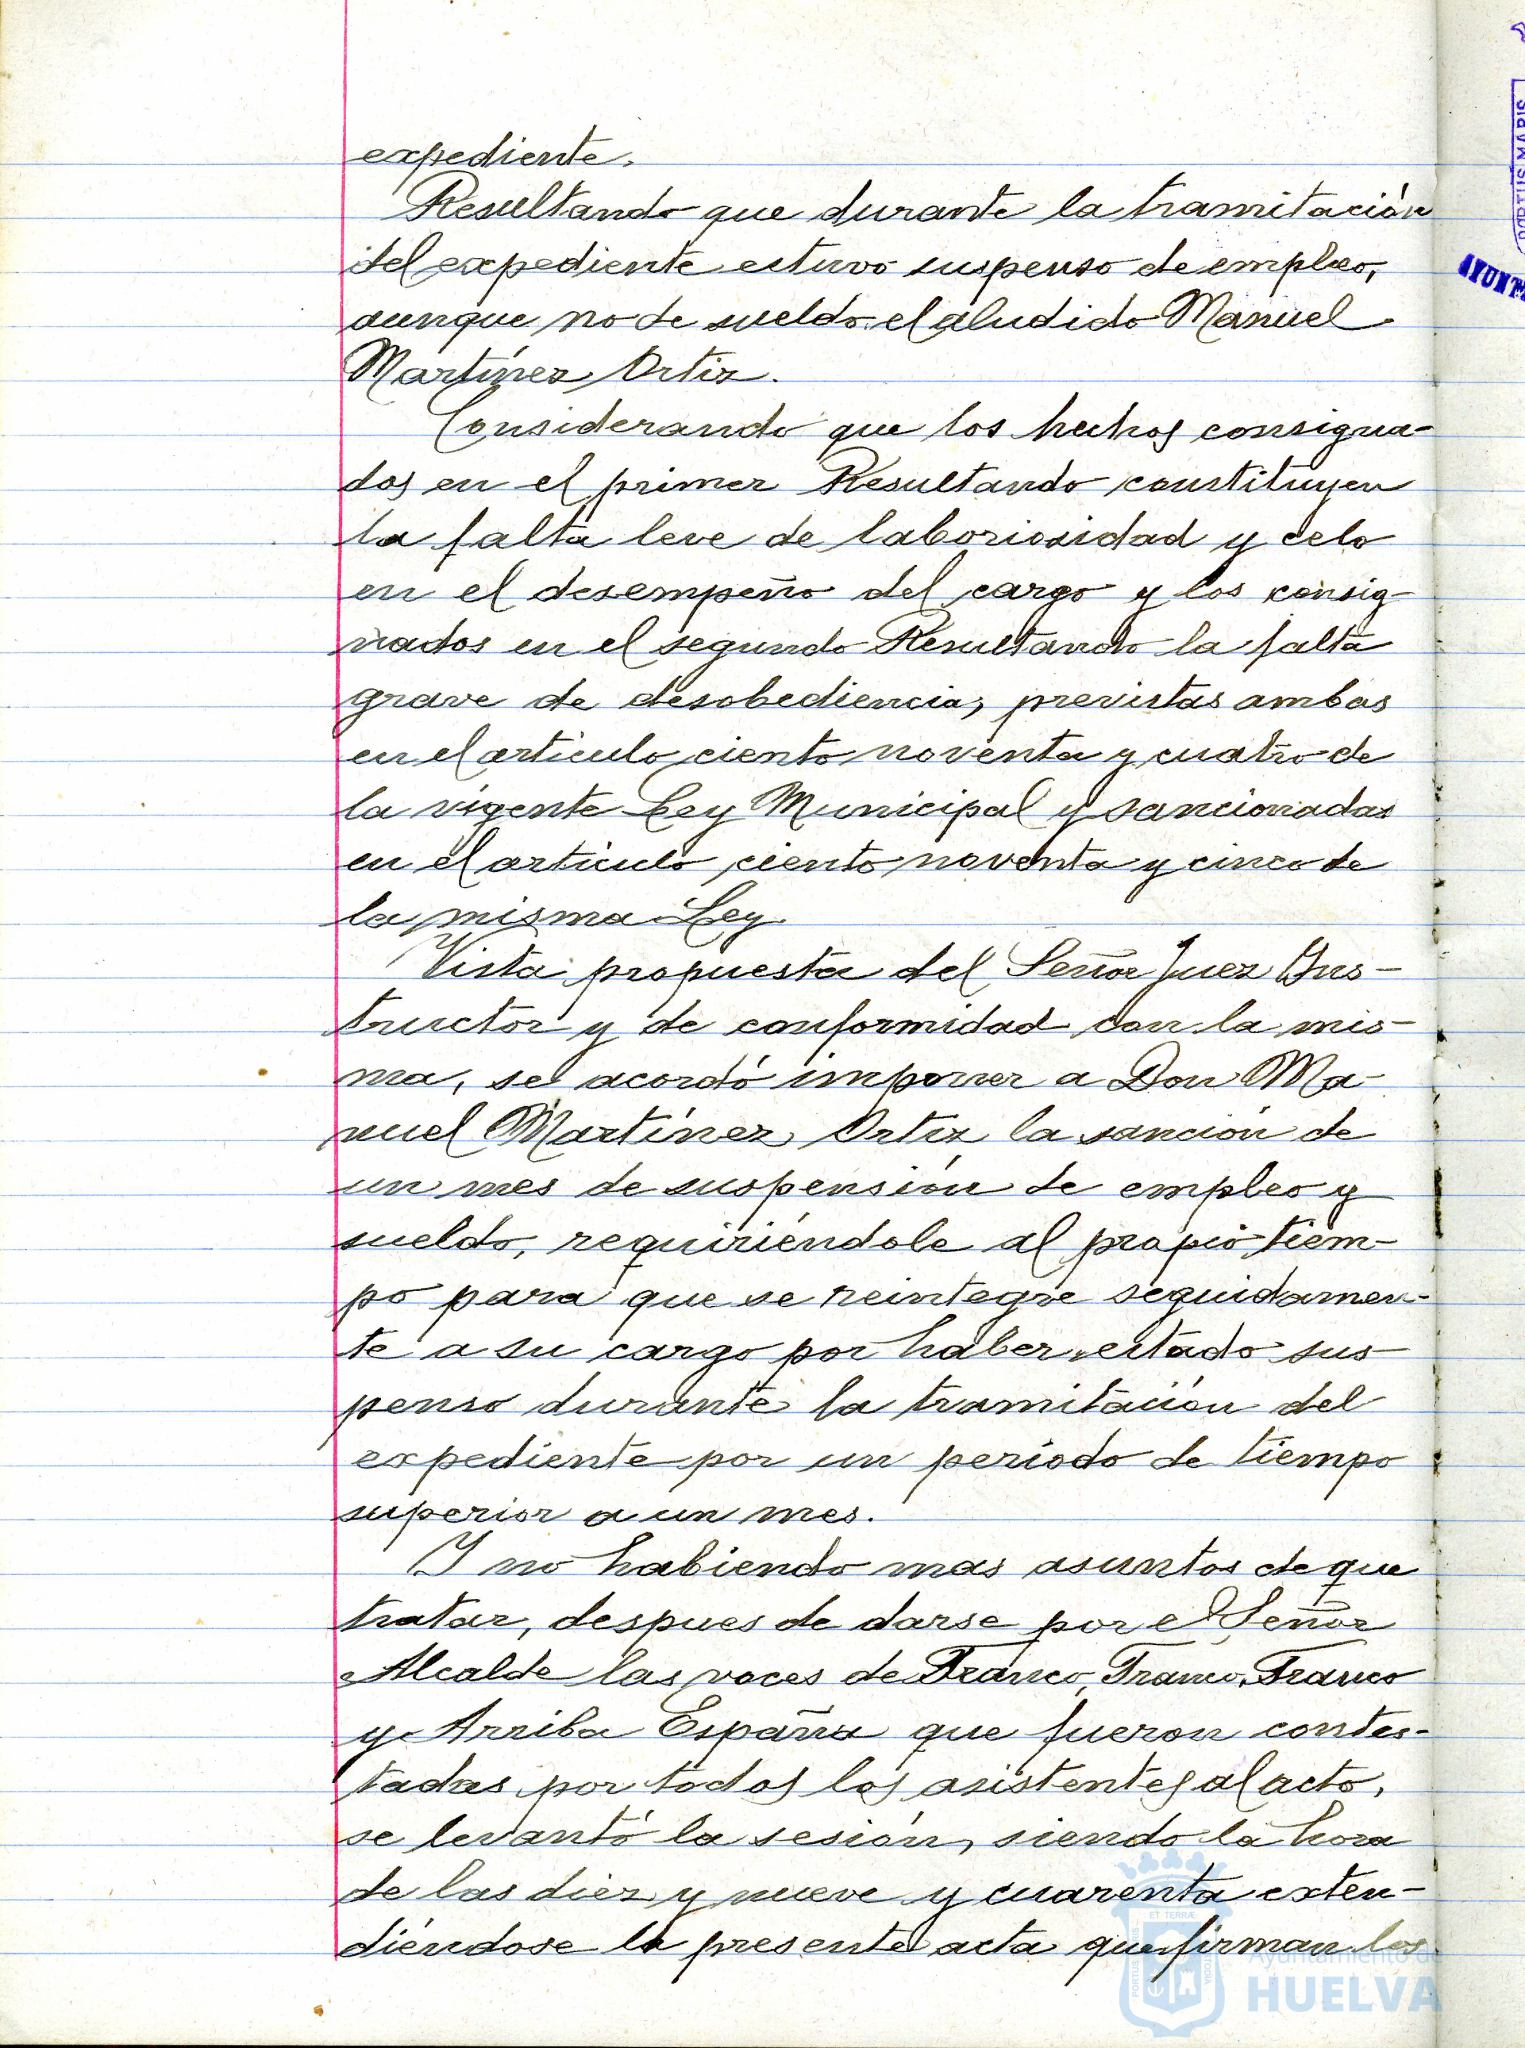 expediente.
Resultando que durante la tramitación
del expediente estuvo suspenso de empleo,
aunque no de sueldo el aludido Manuel
Martínez Ortiz.
Considerando que los hechos consigna-
dos en el primer Resultando constituyen
la falta leve de laboriosidad y celo
en el desempeño del cargo y los consig-
nados en el segundo Resultando la falta
grave de desobediencia, previstas ambas
en el artículo ciento noventa y cuatro de
la vigente Ley Municipal y sancionadas
en el artículo ciento noventa y cinco de
la misma Ley.
Vista propuesta del Señor Juez Ins-
tructor y de conformidad con la mis-
ma, se acordó imponer a Don Ma-
nuel Martínez Ortiz la sanción de
un mes de suspensión de empleo y
sueldo, requiriéndole al propio tiem-
po para que se reintegre seguidamen-
te a su cargo por haber estado sus-
penso durante la tramitación del
expediente por un período de tiempo
superior a un mes.
Y no habiendo mas asuntos de que
tratar, despues de darse por el Señor
Alcalde las voces de Franco, Franco, Franco
y Arriba España que fueron contes-
tadas por todos los asistentes al acto,
se levantó la sesión, siendo la hora
de las diez y nueve y cuarenta exten-
diéndose la presente acta que firman los
PORTUS MARIS
AYUNT
ET TERRÆ
PORTUS
CUSTODIA
Ayuntamiento de
HUELVA